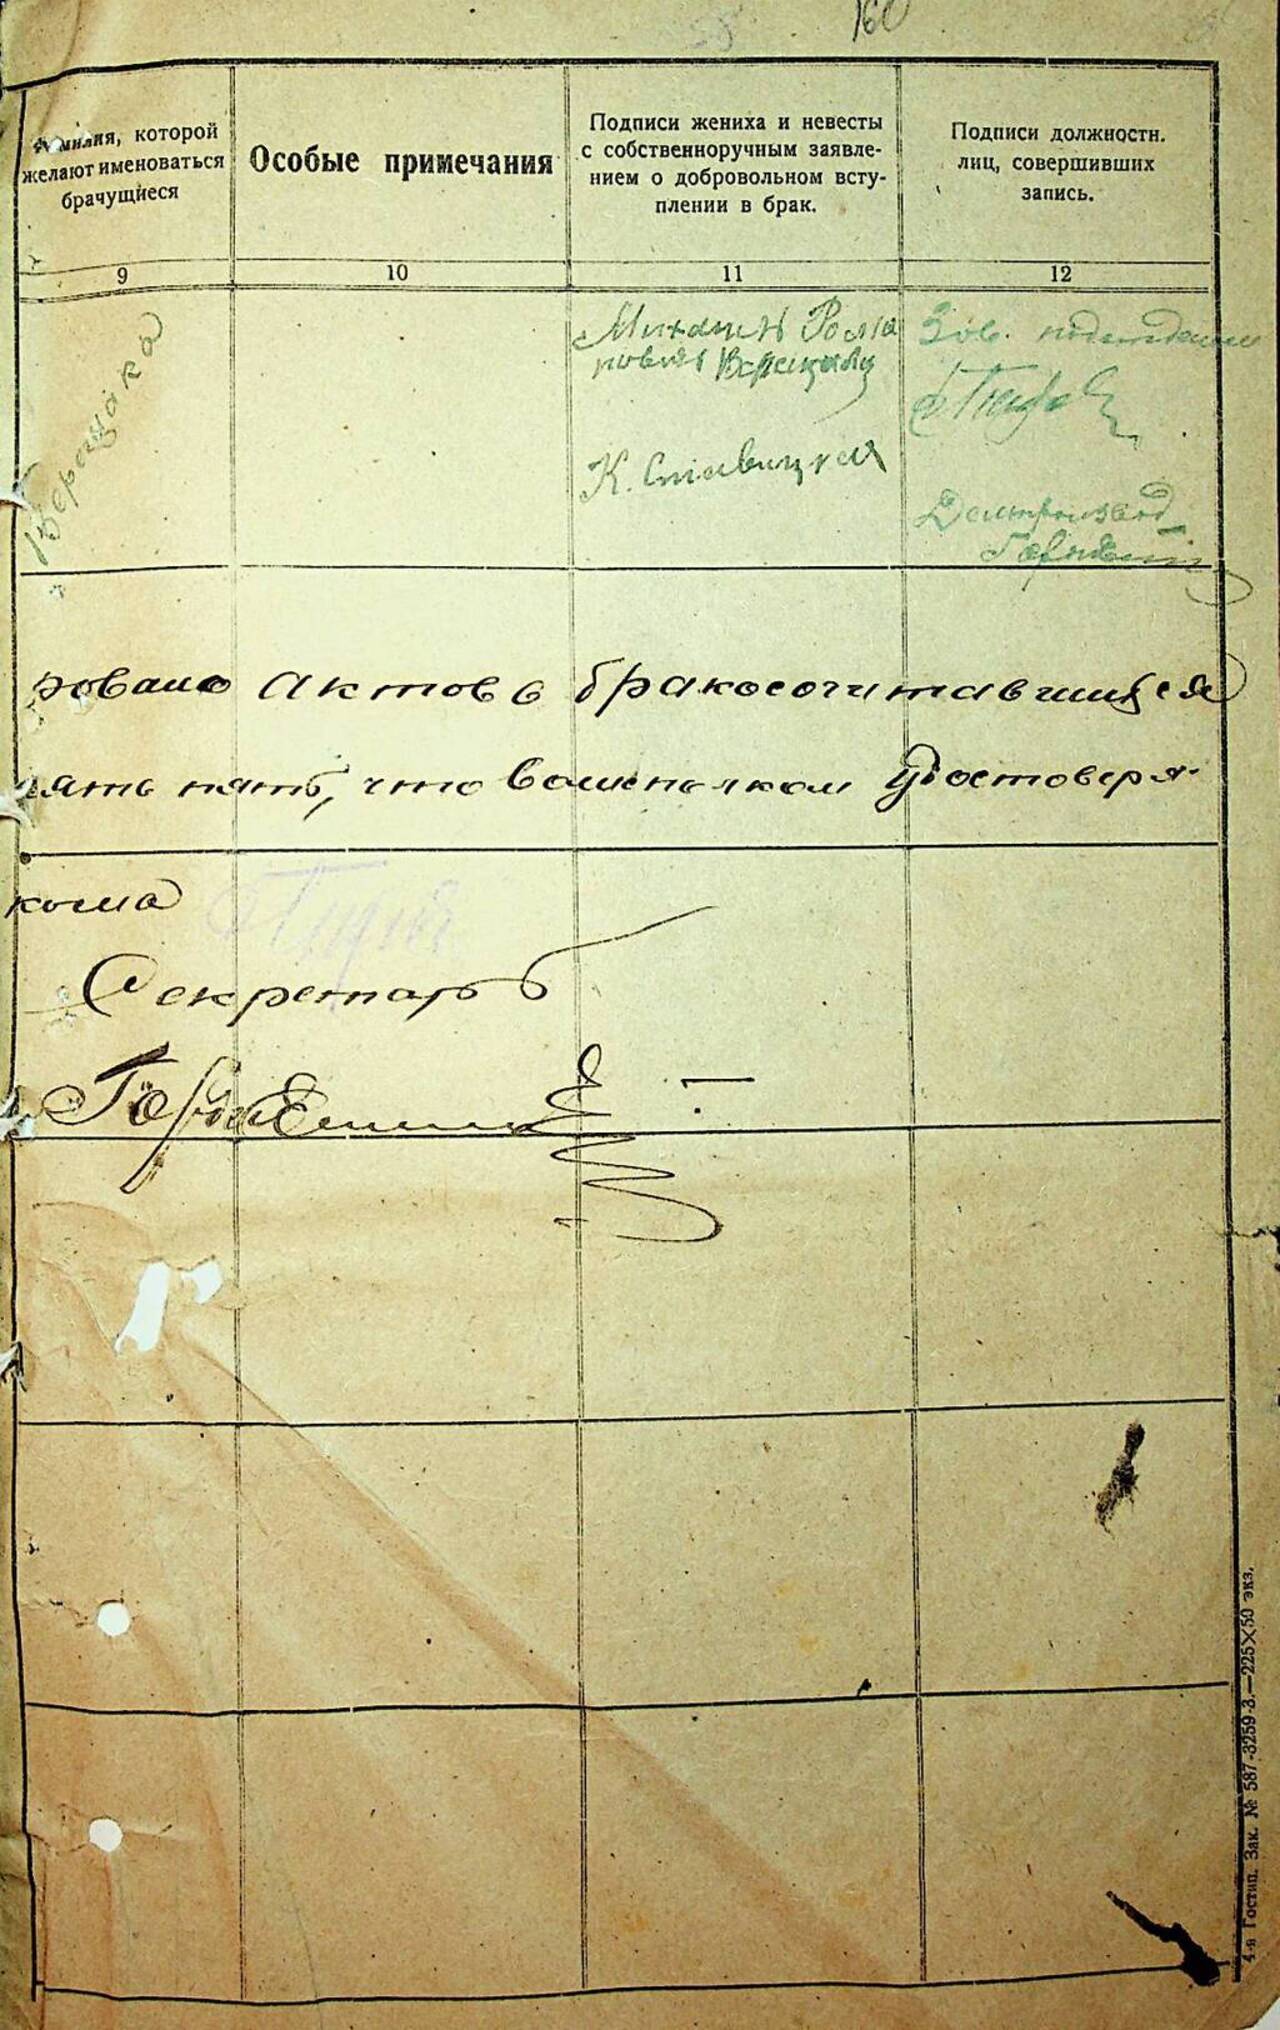 160
Фамилия, которой
желают именоваться
брачущиеся
Особые примечания
Подписи жениха и невесты
с собственноручным заявле-
нием о добровольном всту-
плении в брак.
Подписи должностн.
лиц, совершивших
запись.
9
10
11
12
Верещака
Михаил Рома
К. Ставицкая
Зав.
Делопроизвод
ровано актов о бракосочитавшихся
пять, что волисполком удостоверя-
кома
Секретарь
4-я Гостип. Зак. № 587-3259-3.—225X50 экз.